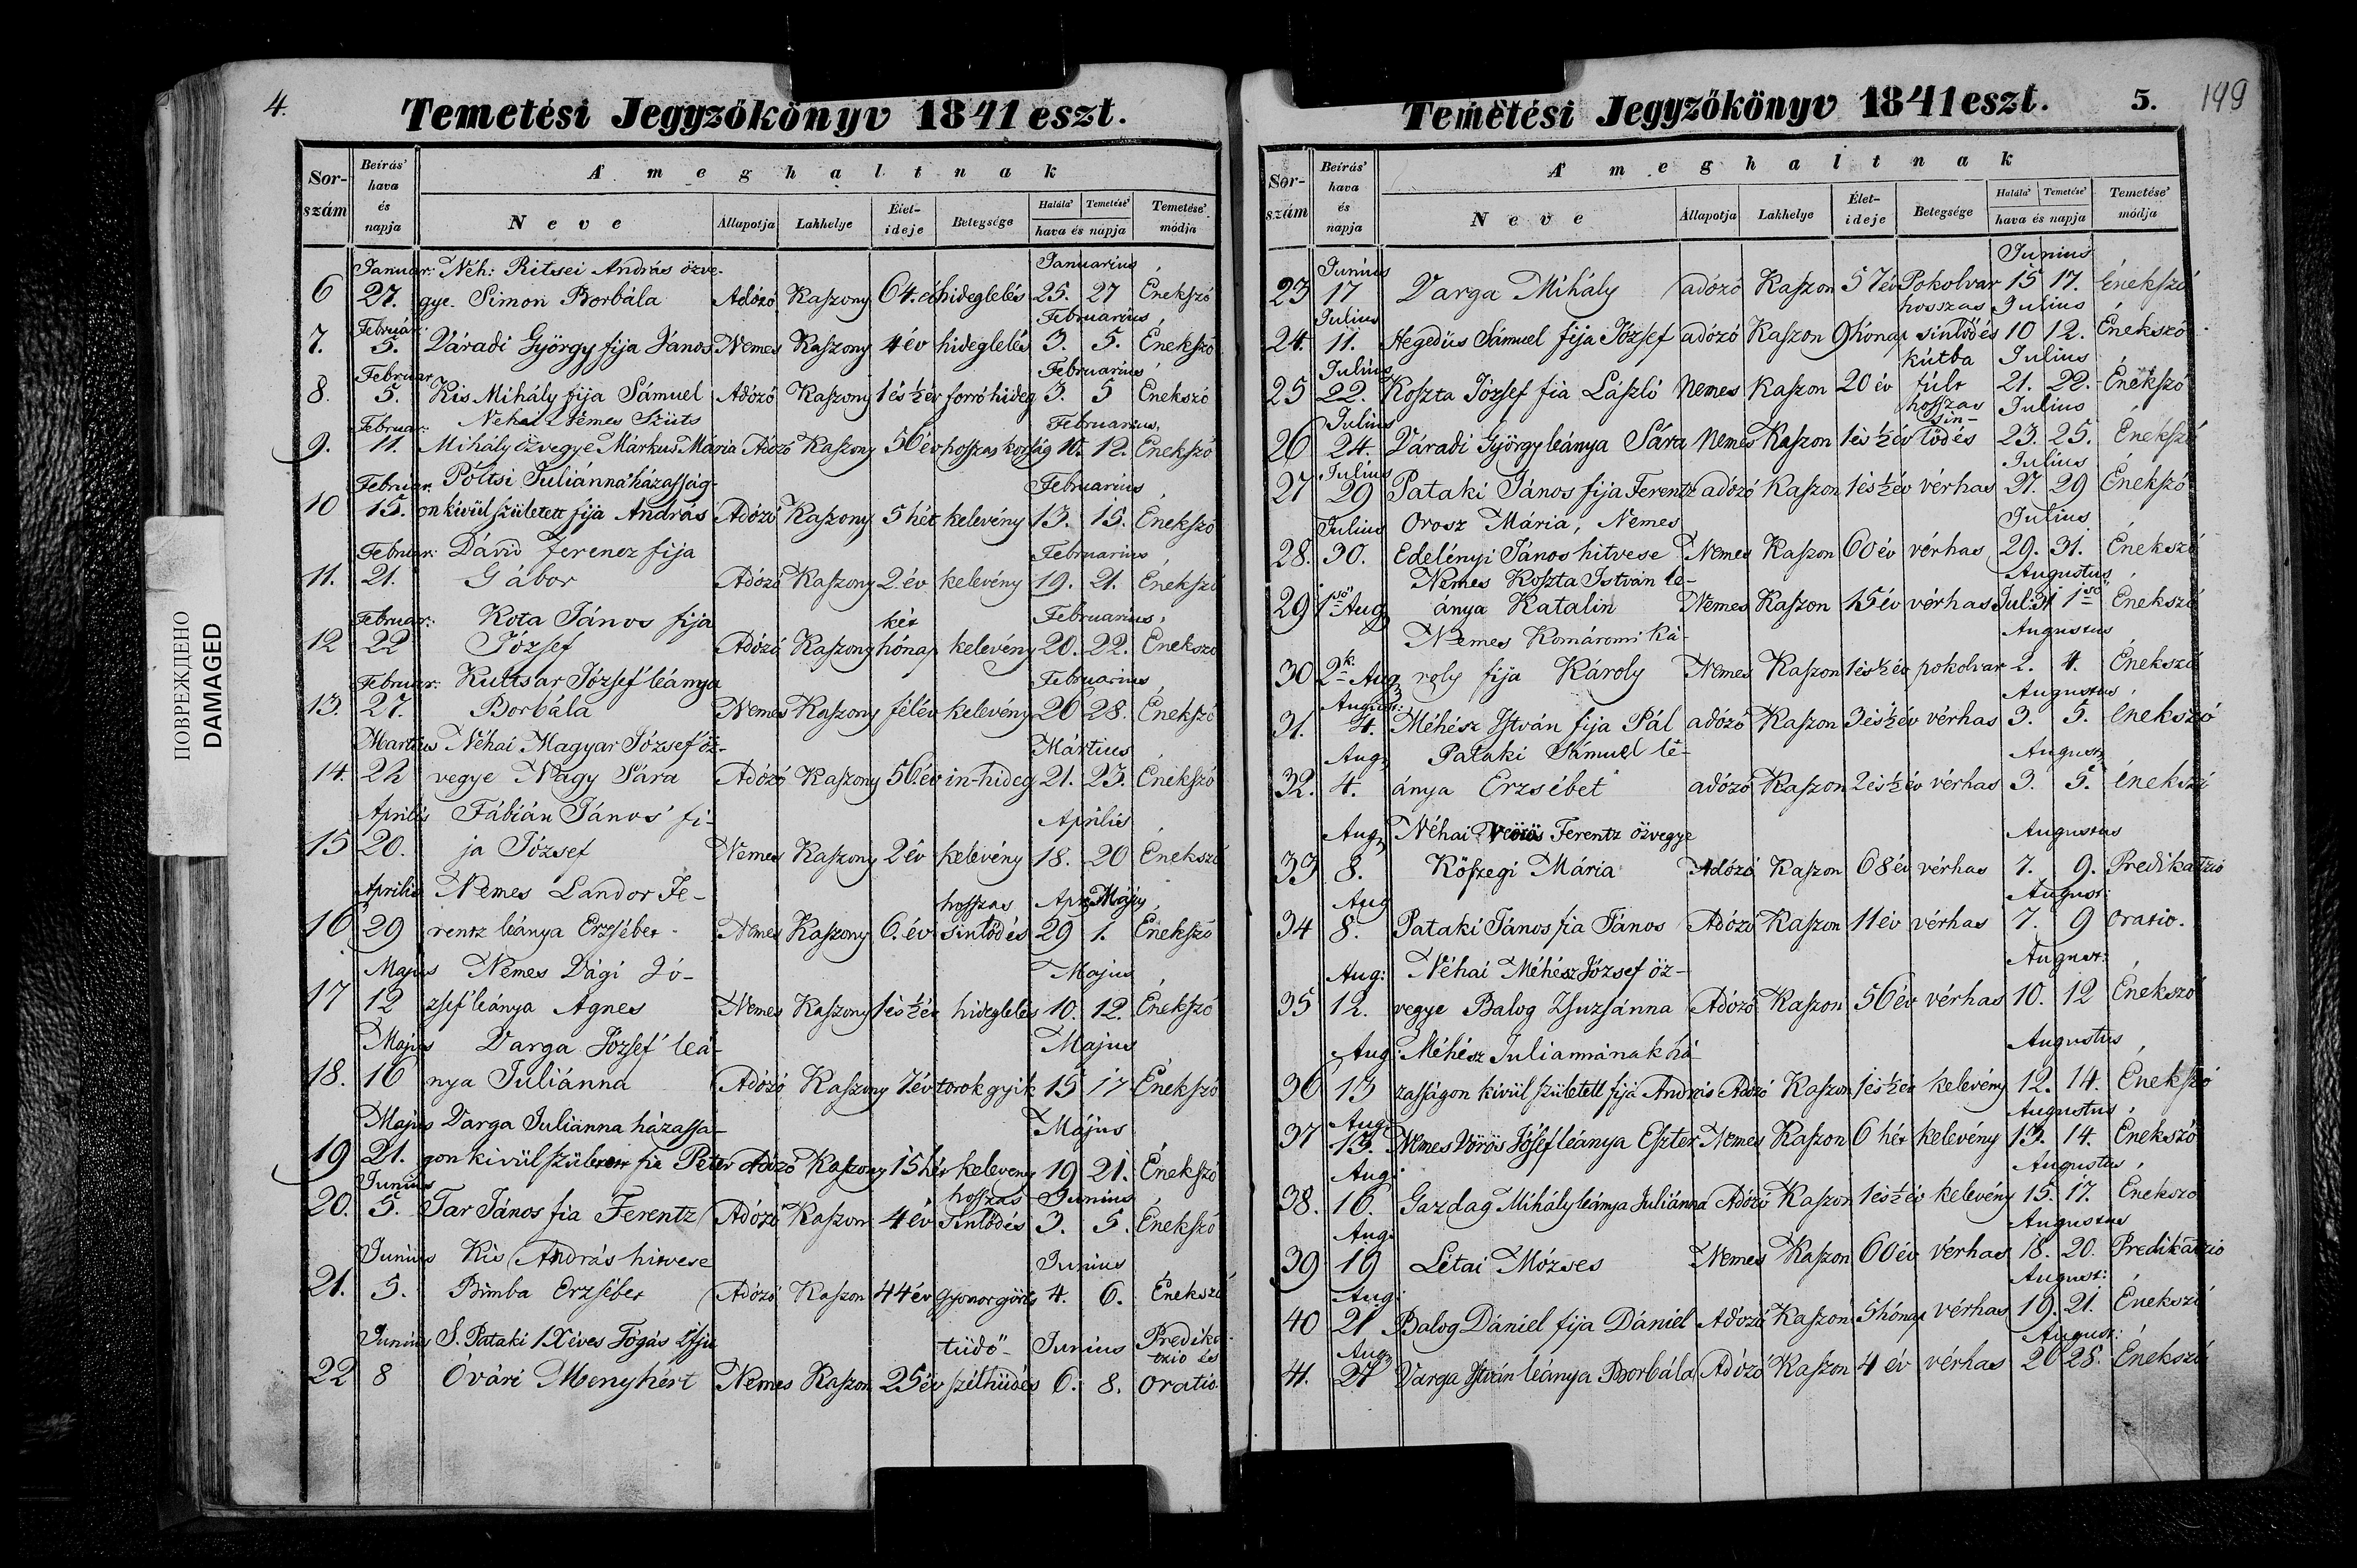 4.
Temetési Jegyzőkönyv 1841 eszt.
Sor-szám Beírás' hava és napja A' meghaltnak
Neve Állapotja Lakhelye Élet-ideje Betegsége Halála' Temetése' hava és napja Temetése' módja
Januar: Néh: Ritsei András özve- Januarius
6 27. gye. Simon Borbála Adózó Kaszony 64. év hideglelés 25. 27 Énekszó
Február: Februarius
7. 5. Váradi György fija János Nemes Kaszony 4 év hideglelés 3. 5. Énekszó
Februar Februárius
8. 5. Kis Mihály fija Sámuel Adózó Kaszony 1 és ½ év forró hideg 3. 5 Énekszó
Februar: Nehai Nemes Szüts Februarius
9. 11. Mihály özvegye Márkus Mária Adózó Kaszony 56 év hosszas korság 10. 12. Énekszó
Februar. Póltsi Juliánna házasság- Februarius
10 15. on kivül született fija András Adózó Kaszony 5 hét kelevény 13. 15. Énekszó
Februar: Dávid Ferencz fija Februarius
11. 21. Gábor Adózó Kaszony 2. év kelevény 19. 21. Énekszó
Februar: Kota János fija két Februarius
12 22 József Adózó Kaszony hónap kelevény 20. 22. Énekszó
Februar: Kuttsar József leánya Februarius
13. 27. Borbála Nemes Kaszony félév kelevény 26 28. Énekszó
Martius Néhai Magyar József öz- Mártius
14. 22 vegye Nagy Sára Adózó Kaszony 56 év in-hideg 21. 23. Énekszó
Április Fábián János fi- Április
15 20. ja József Nemes Kaszony 2 év kelevény 18. 20 Énekszó
Április Nemes Landor Fe- hosszas Apr. Május
16 29 rentz leánya Erzsébet Nemes Kaszony 6. év sinlődés 29 1. Énekszó
Majus Nemes Dági Jó- Majus
17 12 zsef leánya Agnes Nemes Kaszony 1 és ½ év hideglelés 10. 12. Énekszó
Május Varga József leá- Majus
18. 16 nya Juliánna Adózó Kaszony 7 év torokgyik 15 17 Énekszó
Majus Varga Juliánna házassá- Május
19 21. gon kivül született fia Péter Adózó Kaszony 15 hét kelevény 19 21. Énekszó
Junius hosszas Junius
20. 5. Tar János fia Ferentz Adózó Kaszon 4 év Sinlődés 3. 5. Énekszó
Junius Kis András hitvese Junius
21. 5. Bimba Erzsébet Adózó Kaszon 44 év Gyomorgörts 4. 6. Énekszó
Junius S. Pataki IX éves Tógás Ifju tüdő- Junius Predika-tzio és
22 8 Óvári Menyhért Nemes Kaszon 25 év szélhüdés 6. 8. oratio.
Temetési Jegyzőkönyv 1841 eszt. 5. 199
Sor-szám Beírás' hava és napja A' meghaltnak
Neve Állapotja Lakhelye Élet-ideje Betegsége Halála' Temetése' hava és napja Temetése' módja
Junius Junius
23 17 Varga Mihály adózó Kaszon 57 év Pokolvar 15 17. Énekszó
Julius hosszas Julius
24. 11. Hegedüs Sámuel fija József adózó Kaszon 9 hónap sinlődés 10 12. Énekszó
Julius kútba Julius
25 22. Koszta József fia László Nemes Kaszon 20 év fúlt 21. 22. Énekszó
Julius hosszas sin- Julius
26 24. Váradi György leánya Sára Nemes Kaszon 1 és ½ év lődés 23. 25. Énekszó
Julius Julius
27 29 Pataki János fija Ferentz adózó Kaszon 1 és ½ év vérhas 27. 29 Énekszó
Julius Orosz Mária, Nemes Julius
28. 30. Edelényi János hitvese Nemes Kaszon 60 év vérhas 29. 31. Énekszó
Nemes Koszta István le- Augustus
29 1ső Aug ánya Katalin Nemes Kaszon 15 év vérhas Jul: 31 1ső Énekszó
Nemes Komáromi Ká- Augustus
30 2k Aug roly fija Károly Nemes Kaszon 1 és ½ év pokolvar 2. 4. Énekszó
August: Augustus
31. 4. Méhész István fija Pál adózó Kaszon 3 és ½ év vérhas 3. 5. Énekszó
Aug Pataki Sámuel le- August
32. 4. ánya Erzsébet adózó Kaszon 2 és ½ év vérhas 3. 5. Énekszó
Aug Néhai Vörös Ferentz özvegye Augustus
33 8. Kőszegi Mária Adózó Kaszon 68 év vérhas 7. 9. Predikatzio
Aug August:
34 8. Pataki János fia János Adózó Kaszon 11 év vérhas 7. 9 Oratio.
Aug: Néhai Méhész József öz- August:
35 12. vegye Balog Zsuzsánna Adózó Kaszon 56 év vérhas 10. 12 Énekszó
Aug: Méhész Juliannának há- Augustus
36 13 zasságon kivül született fija András Adózó Kaszon 1 és ½ év kelevény 12. 14. Énekszó
Aug: Augustus
37 13. Nemes Vörös József leánya Eszter Nemes Kaszon 6 hét kelevény 13. 14. Énekszó
Aug: Augustus
38. 16. Gazdag Mihály leánya Juliánna Adózó Kaszon 1 és ½ év kelevény 15. 17. Énekszó
Aug: Augustus
39 19 Létai Mózses Nemes Kaszon 60 év vérhas 18. 20. Predikátzio
Aug: August:
40 21 Balog Dániel fija Dániel Adózó Kaszon 5 hónap vérhas 19. 21. Énekszó
Aug August:
41. 27 Varga István leánya Borbála Adózó Kaszon 4 év vérhas 26 28. Énekszó
ПОВРЕЖДЕНО
DAMAGED